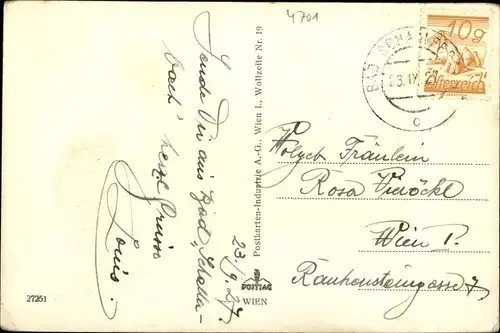 4701
Sende Dir aus Bad Schaller-
bach herzl. Grüsse
Louis.
23./9.27.
Postkarten-Industrie A.-G., Wien I., Wollzeile Nr. 19
POSTIAG
WIEN
27251
10g
Österreich
BAD SCHALLERB
23.IX.27
c
Fräulein
Rosa
Wien I.
Rauhensteingasse 7